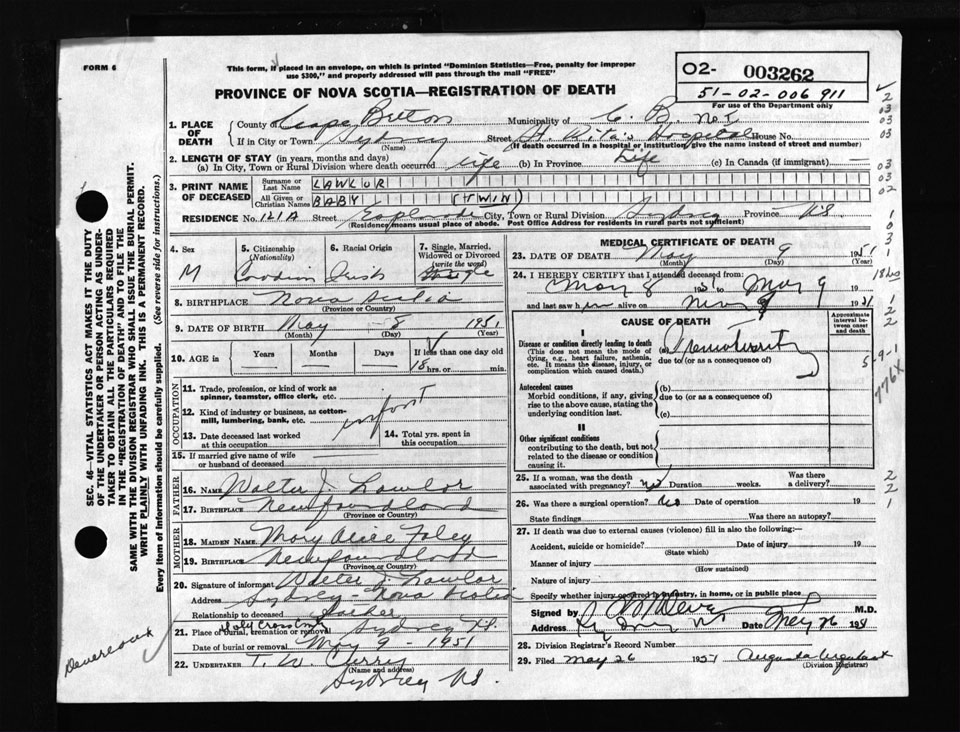 FORM 6
This form, if placed in an envelope, on which is printed "Dominion Statistics—Free, penalty for improper
use $300," and properly addressed will pass through the mail "FREE"
O2- 003262
51-02-006 911
For use of the Department only
PROVINCE OF NOVA SCOTIA—REGISTRATION OF DEATH
1. PLACE OF DEATH
County of Cape Breton Municipality of C. B.
If in City or Town Sydney (Name) Street St. Rita's Hospital House No.
(If death occurred in a hospital or institution, give the name instead of street and number)
2. LENGTH OF STAY (in years, months and days)
(a) In City, Town or Rural Division where death occurred life (b) In Province Life (c) In Canada (if immigrant) —
3. PRINT NAME OF DECEASED
Surname or Last Name LAWLOR
All Given or Christian Names BABY (TWIN)
RESIDENCE No. 121A Street Esplanade City, Town or Rural Division Sydney Province NS
(Residence means usual place of abode. Post Office Address for residents in rural parts not sufficient)
4. Sex M
5. Citizenship (Nationality) Canadian
6. Racial Origin Irish
7. Single, Married, Widowed or Divorced (write the word) Single
8. BIRTHPLACE Nova Scotia
(Province or Country)
9. DATE OF BIRTH May 8 1951
(Month) (Day) (Year)
10. AGE in Years Months Days If less than one day old
18 hrs. or min.
OCCUPATION
11. Trade, profession, or kind of work as spinner, teamster, office clerk, etc.
12. Kind of industry or business, as cotton-mill, lumbering, bank, etc.
infant
13. Date deceased last worked at this occupation
14. Total yrs. spent in this occupation
15. If married give name of wife or husband of deceased
FATHER
16. NAME Walter J. Lawlor
17. BIRTHPLACE Newfoundland
(Province or Country)
MOTHER
18. MAIDEN NAME Mary Alice Foley
19. BIRTHPLACE Newfoundland
(Province or Country)
20. Signature of informant Walter J. Lawlor
Address Sydney - Nova Scotia
Relationship to deceased Father
21. Place of burial, cremation or removal Holy Cross Sydney
Date of burial or removal May 9 - 1951
22. UNDERTAKER T. W. Curry
(Name and address)
Sydney NS.
MEDICAL CERTIFICATE OF DEATH
23. DATE OF DEATH May 9 1951
(Month) (Day)
24. I HEREBY CERTIFY that I attended deceased from:
May 8 1951 to May 9 19
and last saw him alive on May 9 1951
CAUSE OF DEATH
Approximate interval between onset and death
I
Disease or condition directly leading to death
(This does not mean the mode of dying, e.g., heart failure, asthenia, etc. It means the disease, injury, or complication which caused death.)
(a) Prematurity
due to (or as a consequence of)
Antecedent causes
Morbid conditions, if any, giving rise to the above cause, stating the underlying condition last.
(b)
due to (or as a consequence of)
(c)
II
Other significant conditions
contributing to the death, but not related to the disease or condition causing it.
25. If a woman, was the death associated with pregnancy? no Duration weeks. Was there a delivery?
26. Was there a surgical operation? no Date of operation 19
State findings Was there an autopsy?
27. If death was due to external causes (violence) fill in also the following:—
Accident, suicide or homicide? Date of injury 19
(State which)
Manner of injury
(How sustained)
Nature of injury
Specify whether injury occurred in industry, in home, or in public place
Signed by M.D.
Address Sydney NS Date May 26 1951
28. Division Registrar's Record Number
29. Filed May 26 1951 Augusta Urquhart
(Division Registrar)
SEC. 46—VITAL STATISTICS ACT MAKES IT THE DUTY
OF THE UNDERTAKER OR PERSON ACTING AS UNDER-
TAKER TO OBTAIN ALL THE PARTICULARS REQUIRED
IN THE "REGISTRATION OF DEATH" AND TO FILE THE
SAME WITH THE DIVISION REGISTRAR WHO SHALL ISSUE THE BURIAL PERMIT.
WRITE PLAINLY WITH UNFADING INK. THIS IS A PERMANENT RECORD.
Every item of Information should be carefully supplied. (See reverse side for instructions.)
2
03
03
03
03
03
02
1
0
3
1
18 hrs
1
2
2
776X
2
2
1